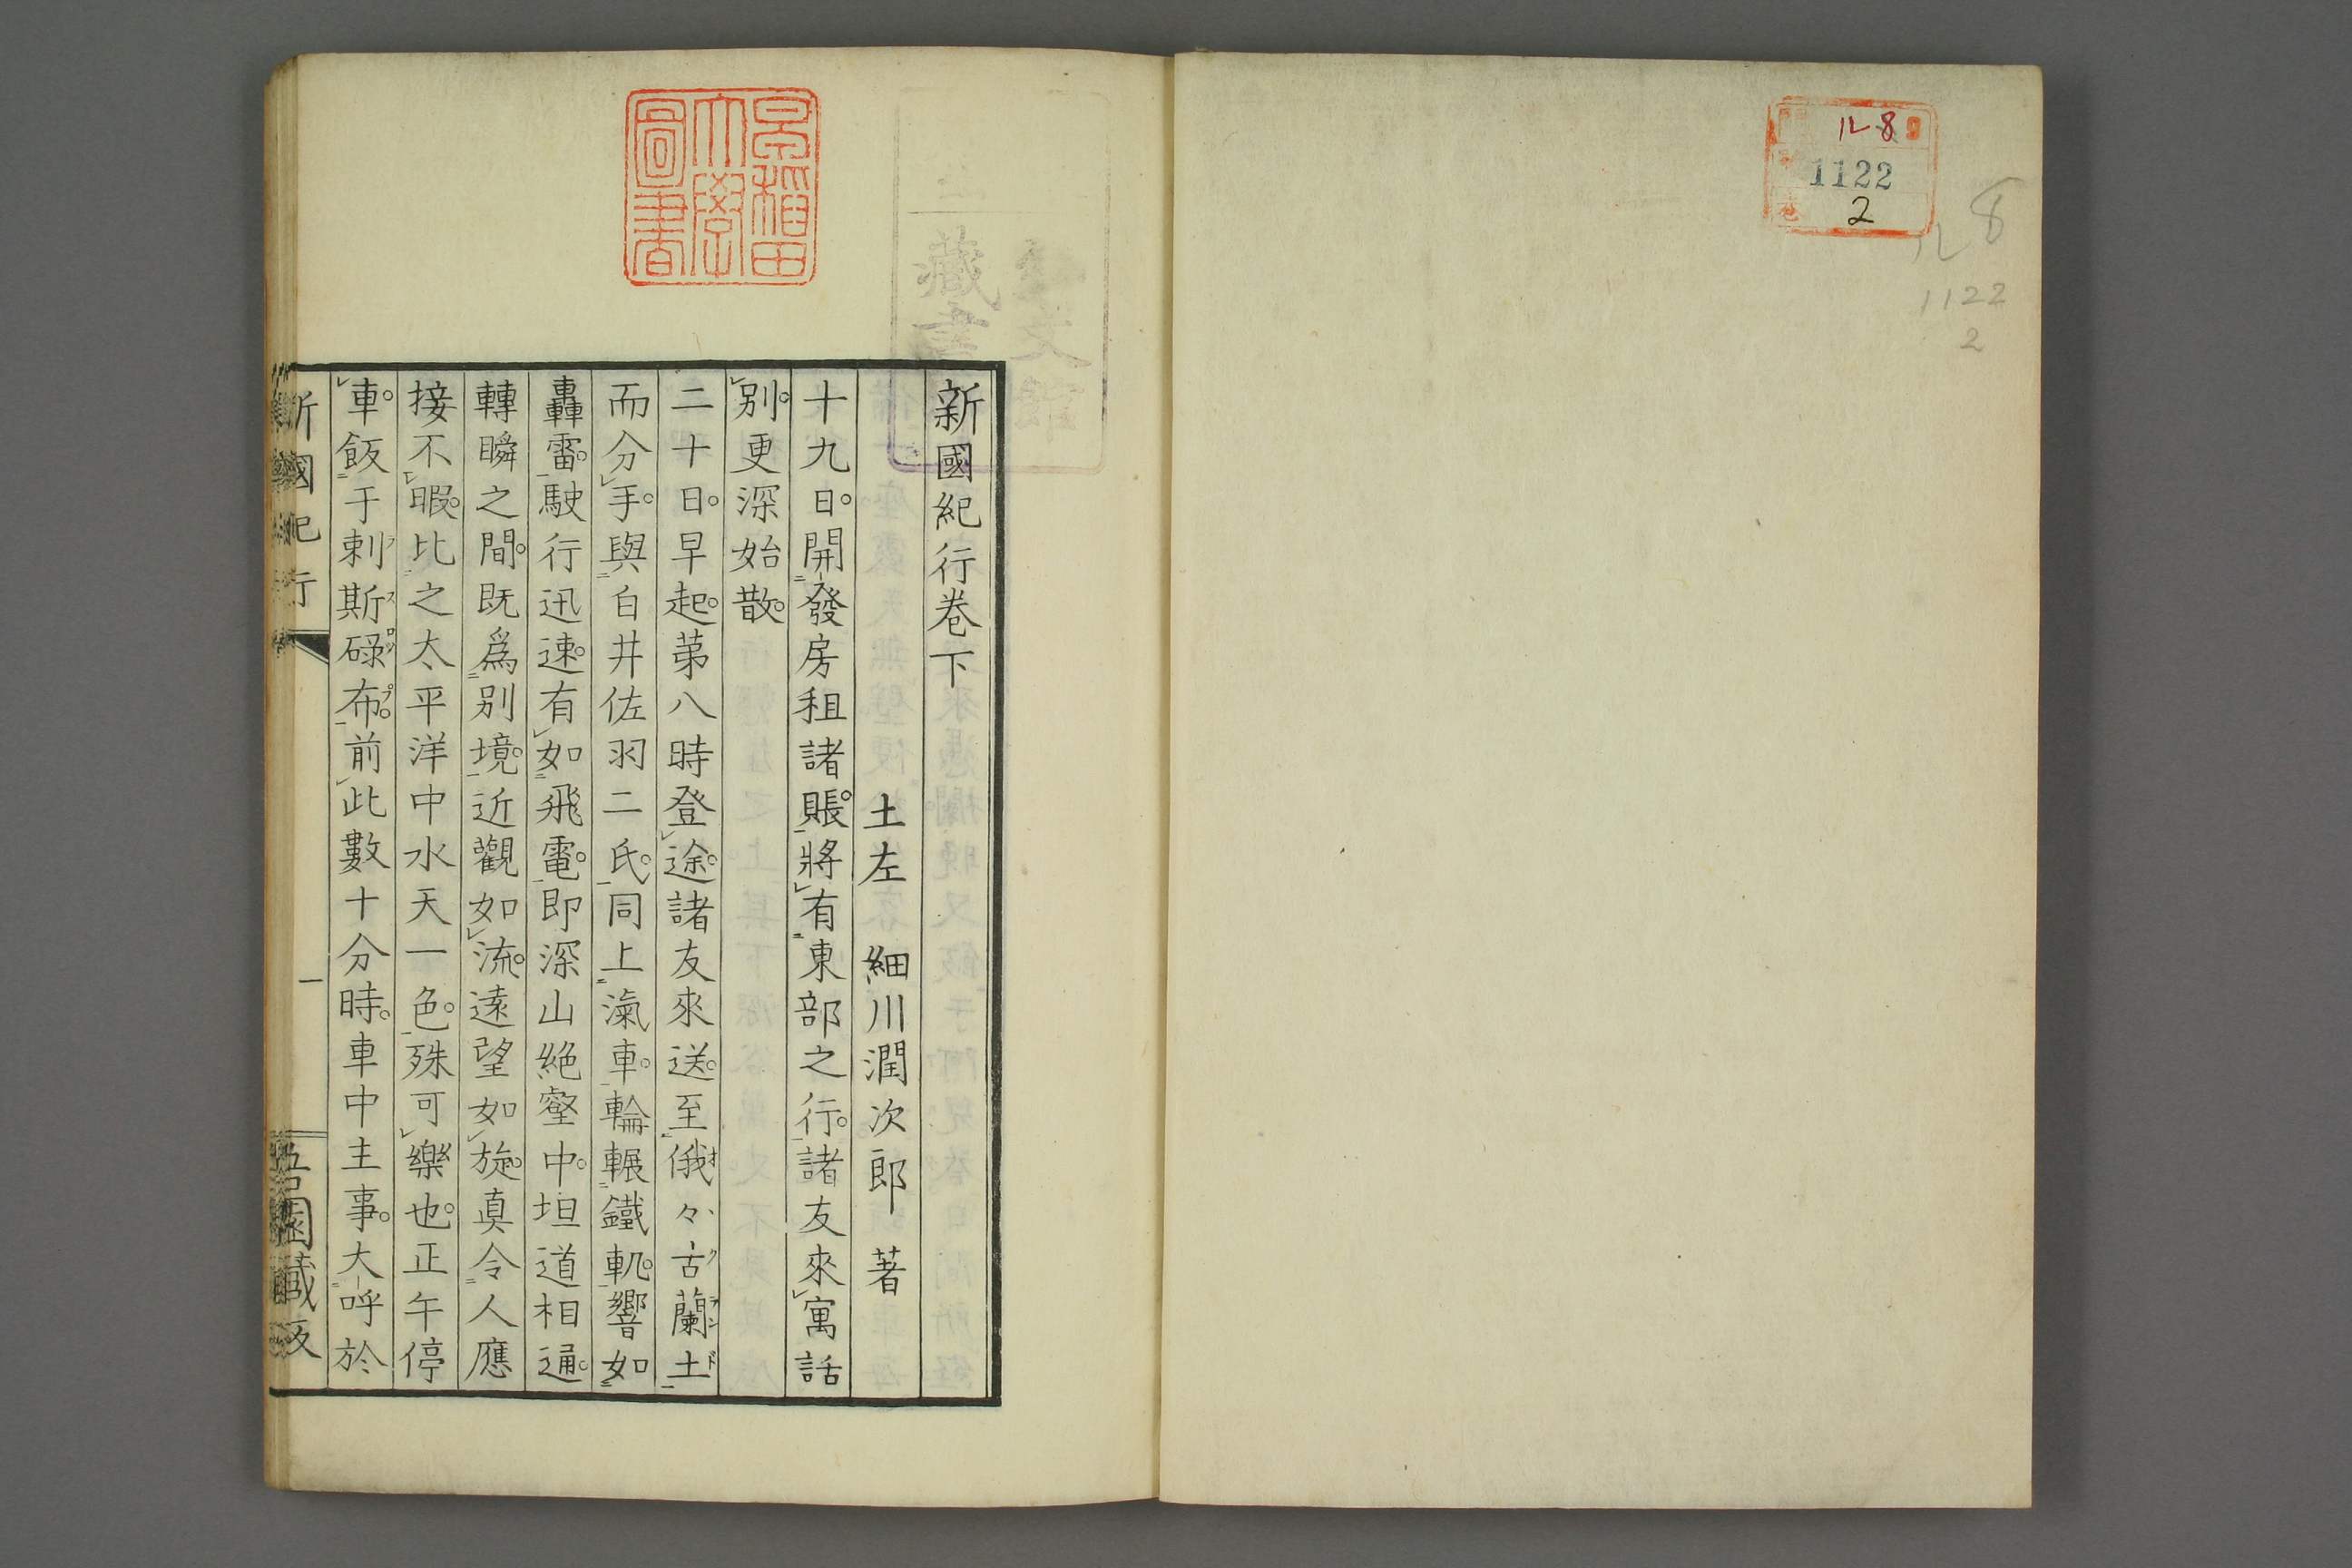 ル 8
1122
2
ル 8
1122
2
早稲田
大學
圖書
新國紀行卷下
土左 細川潤次郎 著
十九日。開發房租諸賬。將有東部之行。諸友來寓話
別。更深始散。
二十日。早起。第八時登途。諸友來送。至俄々古蘭土
而分手。與白井佐羽二氏。同上滊車。輪輾鐵軌。響如
轟雷。駛行迅速。有如飛電。即深山絶壑中。坦道相通。
轉瞬之間。既爲別境。近觀如流。遠望如旋。真令人應
接不暇。比之太平洋中水天一色。殊可樂也。正午停
車。飯于剌斯碌布。前此數十分時。車中主事。大呼於
新國紀行
一
吾園藏版